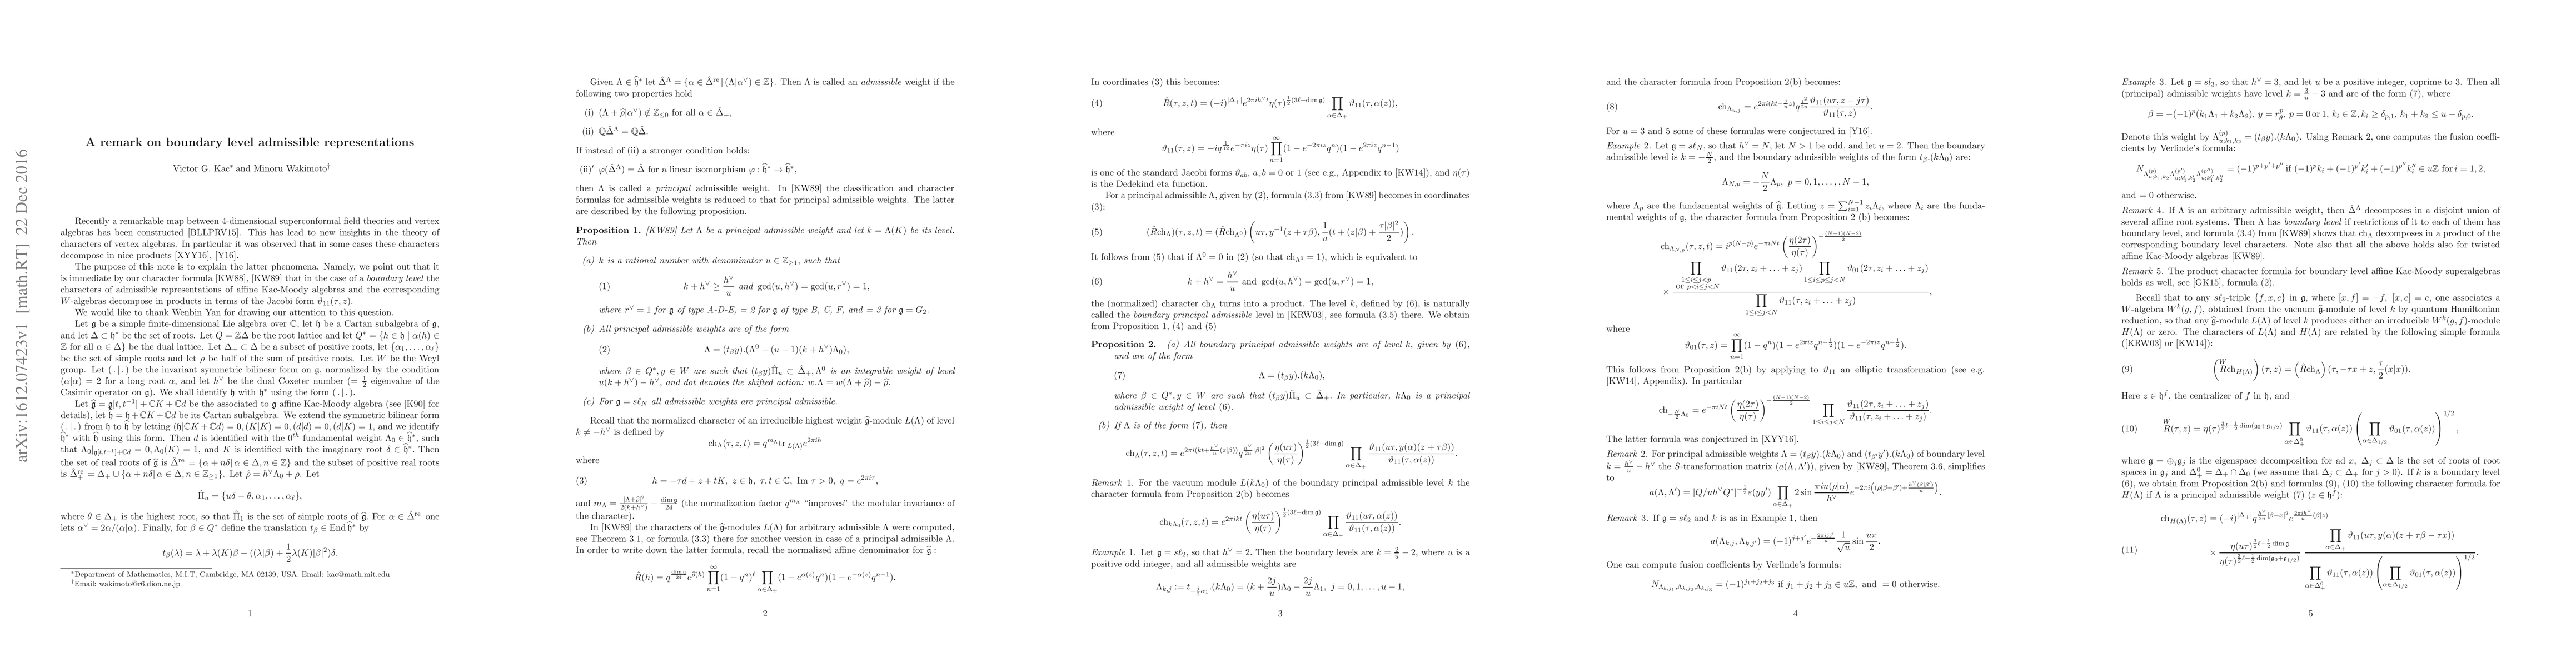 arXiv:1612.07423v1 [math.RT] 22 Dec 2016
A remark on boundary level admissible representations
Victor G. Kac* and Minoru Wakimoto†
Recently a remarkable map between 4-dimensional superconformal field theories and vertex
algebras has been constructed [BLLPRV15]. This has lead to new insights in the theory of
characters of vertex algebras. In particular it was observed that in some cases these characters
decompose in nice products [XYY16], [Y16].
The purpose of this note is to explain the latter phenomena. Namely, we point out that it
is immediate by our character formula [KW88], [KW89] that in the case of a boundary level the
characters of admissible representations of affine Kac-Moody algebras and the corresponding
W-algebras decompose in products in terms of the Jacobi form ϑ₁₁(τ, z).
We would like to thank Wenbin Yan for drawing our attention to this question.
Let 𝔤 be a simple finite-dimensional Lie algebra over ℂ, let 𝔥 be a Cartan subalgebra of 𝔤,
and let Δ ⊂ 𝔥* be the set of roots. Let Q = ℤΔ be the root lattice and let Q* = {h ∈ 𝔥 | α(h) ∈
ℤ for all α ∈ Δ} be the dual lattice. Let Δ₊ ⊂ Δ be a subset of positive roots, let {α₁, . . . , α_ℓ}
be the set of simple roots and let ρ be half of the sum of positive roots. Let W be the Weyl
group. Let ( . | . ) be the invariant symmetric bilinear form on 𝔤, normalized by the condition
(α|α) = 2 for a long root α, and let h^∨ be the dual Coxeter number (= ½ eigenvalue of the
Casimir operator on 𝔤). We shall identify 𝔥 with 𝔥* using the form ( . | . ).
Let 𝔤̂ = 𝔤[t, t⁻¹] + ℂK + ℂd be the associated to 𝔤 affine Kac-Moody algebra (see [K90] for
details), let 𝔥̂ = 𝔥 + ℂK + ℂd be its Cartan subalgebra. We extend the symmetric bilinear form
( . | . ) from 𝔥 to 𝔥̂ by letting (𝔥|ℂK + ℂd) = 0, (K|K) = 0, (d|d) = 0, (d|K) = 1, and we identify
𝔥̂* with 𝔥̂ using this form. Then d is identified with the 0ᵗʰ fundamental weight Λ₀ ∈ 𝔥̂*, such
that Λ₀|_{𝔤[t,t⁻¹]+ℂd} = 0, Λ₀(K) = 1, and K is identified with the imaginary root δ ∈ 𝔥̂*. Then
the set of real roots of 𝔤̂ is Δ̂^re = {α + nδ| α ∈ Δ, n ∈ ℤ} and the subset of positive real roots
is Δ̂₊^re = Δ₊ ∪ {α + nδ| α ∈ Δ, n ∈ ℤ≥1}. Let ρ̂ = h^∨Λ₀ + ρ. Let
Π̂_u = {uδ − θ, α₁, . . . , α_ℓ},
where θ ∈ Δ₊ is the highest root, so that Π̂₁ is the set of simple roots of 𝔤̂. For α ∈ Δ̂^re one
lets α^∨ = 2α/(α|α). Finally, for β ∈ Q* define the translation t_β ∈ End 𝔥̂* by
t_β(λ) = λ + λ(K)β − ((λ|β) + ½λ(K)|β|²)δ.
*Department of Mathematics, M.I.T, Cambridge, MA 02139, USA. Email: kac@math.mit.edu
†Email: wakimoto@r6.dion.ne.jp
1
Given Λ ∈ 𝔥̂* let Δ̂^Λ = {α ∈ Δ̂^re | (Λ|α^∨) ∈ ℤ}. Then Λ is called an admissible weight if the
following two properties hold
(i) (Λ + ρ̂|α^∨) ∉ ℤ≤0 for all α ∈ Δ̂₊,
(ii) ℚΔ̂^Λ = ℚΔ̂.
If instead of (ii) a stronger condition holds:
(ii)′ φ(Δ̂^Λ) = Δ̂ for a linear isomorphism φ : 𝔥̂* → 𝔥̂*,
then Λ is called a principal admissible weight. In [KW89] the classification and character
formulas for admissible weights is reduced to that for principal admissible weights. The latter
are described by the following proposition.
Proposition 1. [KW89] Let Λ be a principal admissible weight and let k = Λ(K) be its level.
Then
(a) k is a rational number with denominator u ∈ ℤ≥1, such that
(1) k + h^∨ ≥ h^∨/u and gcd(u, h^∨) = gcd(u, r^∨) = 1,
where r^∨ = 1 for 𝔤 of type A-D-E, = 2 for 𝔤 of type B, C, F, and = 3 for 𝔤 = G₂.
(b) All principal admissible weights are of the form
(2) Λ = (t_β y).(Λ⁰ − (u − 1)(k + h^∨)Λ₀),
where β ∈ Q*, y ∈ W are such that (t_β y)Π̂_u ⊂ Δ̂₊, Λ⁰ is an integrable weight of level
u(k + h^∨) − h^∨, and dot denotes the shifted action: w.Λ = w(Λ + ρ̂) − ρ̂.
(c) For 𝔤 = sℓ_N all admissible weights are principal admissible.
Recall that the normalized character of an irreducible highest weight 𝔤̂-module L(Λ) of level
k ≠ −h^∨ is defined by
ch_Λ(τ, z, t) = q^{m_Λ} tr_{L(Λ)} e^{2πih}
where
(3) h = −τd + z + tK, z ∈ 𝔥, τ, t ∈ ℂ, Im τ > 0, q = e^{2πiτ},
and m_Λ = |Λ+ρ̂|²/2(k+h^∨) − dim 𝔤/24 (the normalization factor q^{m_Λ} “improves” the modular invariance of
the character).
In [KW89] the characters of the 𝔤̂-modules L(Λ) for arbitrary admissible Λ were computed,
see Theorem 3.1, or formula (3.3) there for another version in case of a principal admissible Λ.
In order to write down the latter formula, recall the normalized affine denominator for 𝔤̂ :
R̂(h) = q^{dim 𝔤/24} e^{ρ̂(h)} ∏_{n=1}^∞ (1 − qⁿ)^ℓ ∏_{α∈Δ₊} (1 − e^{α(z)}qⁿ)(1 − e^{−α(z)}q^{n−1}).
2
In coordinates (3) this becomes:
(4) R̂(τ, z, t) = (−i)^{|Δ₊|} e^{2πih^∨t} η(τ)^{½(3ℓ−dim 𝔤)} ∏_{α∈Δ₊} ϑ₁₁(τ, α(z)),
where
ϑ₁₁(τ, z) = −iq^{1/12} e^{−πiz} η(τ) ∏_{n=1}^∞ (1 − e^{−2πiz}qⁿ)(1 − e^{2πiz}q^{n−1})
is one of the standard Jacobi forms ϑ_{ab}, a, b = 0 or 1 (see e.g., Appendix to [KW14]), and η(τ)
is the Dedekind eta function.
For a principal admissible Λ, given by (2), formula (3.3) from [KW89] becomes in coordinates
(3):
(5) (R̂ch_Λ)(τ, z, t) = (R̂ch_{Λ⁰}) (uτ, y⁻¹(z + τβ), 1/u (t + (z|β) + τ|β|²/2)) .
It follows from (5) that if Λ⁰ = 0 in (2) (so that ch_{Λ⁰} = 1), which is equivalent to
(6) k + h^∨ = h^∨/u and gcd(u, h^∨) = gcd(u, r^∨) = 1,
the (normalized) character ch_Λ turns into a product. The level k, defined by (6), is naturally
called the boundary principal admissible level in [KRW03], see formula (3.5) there. We obtain
from Proposition 1, (4) and (5)
Proposition 2. (a) All boundary principal admissible weights are of level k, given by (6),
and are of the form
(7) Λ = (t_β y).(kΛ₀),
where β ∈ Q*, y ∈ W are such that (t_β y)Π̂_u ⊂ Δ̂₊. In particular, kΛ₀ is a principal
admissible weight of level (6).
(b) If Λ is of the form (7), then
ch_Λ(τ, z, t) = e^{2πi(kt+h^∨/u (z|β))} q^{h^∨/2u |β|²} (η(uτ)/η(τ))^{½(3ℓ−dim 𝔤)} ∏_{α∈Δ₊} ϑ₁₁(uτ, y(α)(z + τβ))/ϑ₁₁(τ, α(z)).
Remark 1. For the vacuum module L(kΛ₀) of the boundary principal admissible level k the
character formula from Proposition 2(b) becomes
ch_{kΛ₀}(τ, z, t) = e^{2πikt} (η(uτ)/η(τ))^{½(3ℓ−dim 𝔤)} ∏_{α∈Δ₊} ϑ₁₁(uτ, α(z))/ϑ₁₁(τ, α(z)).
Example 1. Let 𝔤 = sℓ₂, so that h^∨ = 2. Then the boundary levels are k = 2/u − 2, where u is a
positive odd integer, and all admissible weights are
Λ_{k,j} := t_{−j/2 α₁}.(kΛ₀) = (k + 2j/u)Λ₀ − 2j/u Λ₁, j = 0, 1, . . . , u − 1,
3
and the character formula from Proposition 2(b) becomes:
(8) ch_{Λ_{u,j}} = e^{2πi(kt−j/u z)} q^{j²/2u} ϑ₁₁(uτ, z − jτ)/ϑ₁₁(τ, z).
For u = 3 and 5 some of these formulas were conjectured in [Y16].
Example 2. Let 𝔤 = sℓ_N, so that h^∨ = N, let N > 1 be odd, and let u = 2. Then the boundary
admissible level is k = −N/2, and the boundary admissible weights of the form t_β.(kΛ₀) are:
Λ_{N,p} = −N/2 Λ_p, p = 0, 1, . . . , N − 1,
where Λ_p are the fundamental weights of 𝔤̂. Letting z = ∑_{i=1}^{N−1} z_iΛ̄_i, where Λ̄_i are the funda-
mental weights of 𝔤, the character formula from Proposition 2 (b) becomes:
ch_{Λ_{N,p}}(τ, z, t) = i^{p(N−p)} e^{−πiNt} (η(2τ)/η(τ))^{−(N−1)(N−2)/2}
× ∏_{1≤i≤j<p or p<i≤j<N} ϑ₁₁(2τ, z_i + . . . + z_j) ∏_{1≤i≤p≤j<N} ϑ₀₁(2τ, z_i + . . . + z_j) / ∏_{1≤i≤j<N} ϑ₁₁(τ, z_i + . . . + z_j),
where
ϑ₀₁(τ, z) = ∏_{n=1}^∞ (1 − qⁿ)(1 − e^{2πiz}q^{n−½})(1 − e^{−2πiz}q^{n−½}).
This follows from Proposition 2(b) by applying to ϑ₁₁ an elliptic transformation (see e.g.
[KW14], Appendix). In particular
ch_{−N/2 Λ₀} = e^{−πiNt} (η(2τ)/η(τ))^{−(N−1)(N−2)/2} ∏_{1≤i≤j<N} ϑ₁₁(2τ, z_i + . . . + z_j)/ϑ₁₁(τ, z_i + . . . + z_j).
The latter formula was conjectured in [XYY16].
Remark 2. For principal admissible weights Λ = (t_β y).(kΛ₀) and (t_{β′} y′).(kΛ₀) of boundary level
k = h^∨/u − h^∨ the S-transformation matrix (a(Λ, Λ′)), given by [KW89], Theorem 3.6, simplifies
to
a(Λ, Λ′) = |Q/uh^∨Q*|^{−½} ε(yy′) ∏_{α∈Δ₊} 2 sin πiu(ρ|α)/h^∨ e^{−2πi((ρ|β+β′)+h^∨(β|β′)/u)}.
Remark 3. If 𝔤 = sℓ₂ and k is as in Example 1, then
a(Λ_{k,j}, Λ_{k,j′}) = (−1)^{j+j′} e^{−2πijj′/u} 1/√u sin uπ/2.
One can compute fusion coefficients by Verlinde’s formula:
N_{Λ_{k,j₁},Λ_{k,j₂},Λ_{k,j₃}} = (−1)^{j₁+j₂+j₃} if j₁ + j₂ + j₃ ∈ uℤ, and = 0 otherwise.
4
Example 3. Let 𝔤 = sℓ₃, so that h^∨ = 3, and let u be a positive integer, coprime to 3. Then all
(principal) admissible weights have level k = 3/u − 3 and are of the form (7), where
β = −(−1)^p(k₁Λ̄₁ + k₂Λ̄₂), y = r_θ^p, p = 0 or 1, k_i ∈ ℤ, k_i ≥ δ_{p,1}, k₁ + k₂ ≤ u − δ_{p,0}.
Denote this weight by Λ^{(p)}_{u;k₁,k₂} = (t_β y).(kΛ₀). Using Remark 2, one computes the fusion coeffi-
cients by Verlinde’s formula:
N_{Λ^{(p)}_{u;k₁,k₂} Λ^{(p′)}_{u;k′₁,k′₂} Λ^{(p″)}_{u;k″₁,k″₂}} = (−1)^{p+p′+p″} if (−1)^p k_i + (−1)^{p′} k′_i + (−1)^{p″} k″_i ∈ uℤ for i = 1, 2,
and = 0 otherwise.
Remark 4. If Λ is an arbitrary admissible weight, then Δ̂^Λ decomposes in a disjoint union of
several affine root systems. Then Λ has boundary level if restrictions of it to each of them has
boundary level, and formula (3.4) from [KW89] shows that ch_Λ decomposes in a product of the
corresponding boundary level characters. Note also that all the above holds also for twisted
affine Kac-Moody algebras [KW89].
Remark 5. The product character formula for boundary level affine Kac-Moody superalgebras
holds as well, see [GK15], formula (2).
Recall that to any sℓ₂-triple {f, x, e} in 𝔤, where [x, f] = −f, [x, e] = e, one associates a
W-algebra W^k(𝔤, f), obtained from the vacuum 𝔤̂-module of level k by quantum Hamiltonian
reduction, so that any 𝔤̂-module L(Λ) of level k produces either an irreducible W^k(𝔤, f)-module
H(Λ) or zero. The characters of L(Λ) and H(Λ) are related by the following simple formula
([KRW03] or [KW14]):
(9) (R^W ch_{H(Λ)}) (τ, z) = (R̂ch_Λ) (τ, −τx + z, τ/2 (x|x)).
Here z ∈ 𝔥^f, the centralizer of f in 𝔥, and
(10) R^W(τ, z) = η(τ)^{3/2 ℓ−½ dim(𝔤₀+𝔤_{1/2})} ∏_{α∈Δ⁰₊} ϑ₁₁(τ, α(z)) (∏_{α∈Δ_{1/2}} ϑ₀₁(τ, α(z)))^{1/2} ,
where 𝔤 = ⊕_j 𝔤_j is the eigenspace decomposition for ad x, Δ_j ⊂ Δ is the set of roots of root
spaces in 𝔤_j and Δ⁰₊ = Δ₊ ∩ Δ₀ (we assume that Δ_j ⊂ Δ₊ for j > 0). If k is a boundary level
(6), we obtain from Proposition 2(b) and formulas (9), (10) the following character formula for
H(Λ) if Λ is a principal admissible weight (7) (z ∈ 𝔥^f):
ch_{H(Λ)}(τ, z) = (−i)^{|Δ₊|} q^{h^∨/2u |β−x|²} e^{2πih^∨/u (β|z)}
(11) × η(uτ)^{3/2 ℓ−½ dim 𝔤} / η(τ)^{3/2 ℓ−½ dim(𝔤₀+𝔤_{1/2})} ∏_{α∈Δ₊} ϑ₁₁(uτ, y(α)(z + τβ − τx)) / ∏_{α∈Δ⁰₊} ϑ₁₁(τ, α(z)) (∏_{α∈Δ_{1/2}} ϑ₀₁(τ, α(z)))^{1/2}.
5